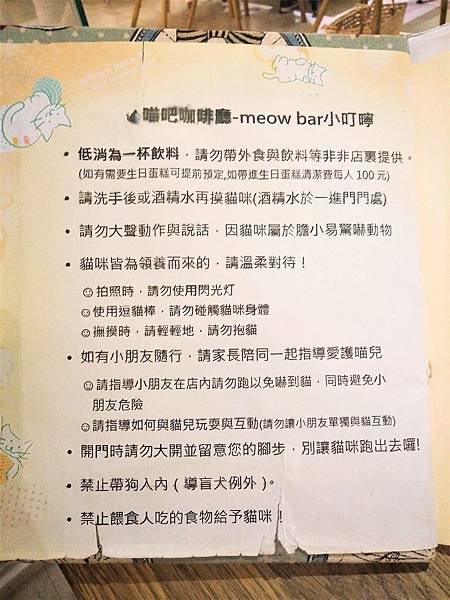 喵吧咖啡廳-meow bar小叮嚀
• 低消為一杯飲料，請勿帶外食與飲料等非非店裏提供。
(如有需要生日蛋糕可提前預定,如帶進生日蛋糕清潔費每人 100 元)
• 請洗手後或酒精水再摸貓咪(酒精水於一進門門處)
• 請勿大聲動作與說話，因貓咪屬於膽小易驚嚇動物
• 貓咪皆為領養而來的，請溫柔對待！
☺拍照時，請勿使用閃光灯
☺使用逗貓棒，請勿碰觸貓咪身體
☺撫摸時，請輕輕地，請勿抱貓
• 如有小朋友隨行，請家長陪同一起指導愛護喵兒
☺請指導小朋友在店內請勿跑以免嚇到貓，同時避免小
朋友危險
☺請指導如何與貓兒玩耍與互動(請勿讓小朋友單獨與貓互動)
• 開門時請勿大開並留意您的腳步，別讓貓咪跑出去囉!
• 禁止帶狗入內（導盲犬例外）。
• 禁止餵食人吃的食物給予貓咪！